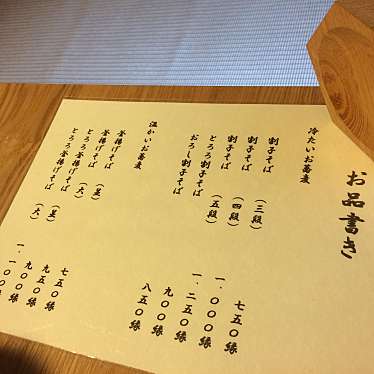 お品書き
冷たいお蕎麦
割子そば (三段) 七五〇縁
割子そば (四段) 一、〇〇〇縁
割子そば (五段) 一、二五〇縁
とろろ割子そば 九〇〇縁
おろし割子そば 八五〇縁
温かいお蕎麦
釜揚げそば (並) 七五〇縁
釜揚げそば (大) 九五〇縁
とろろ釜揚げそば (並) 九〇〇縁
とろろ釜揚げそば (大) 一、一〇〇縁